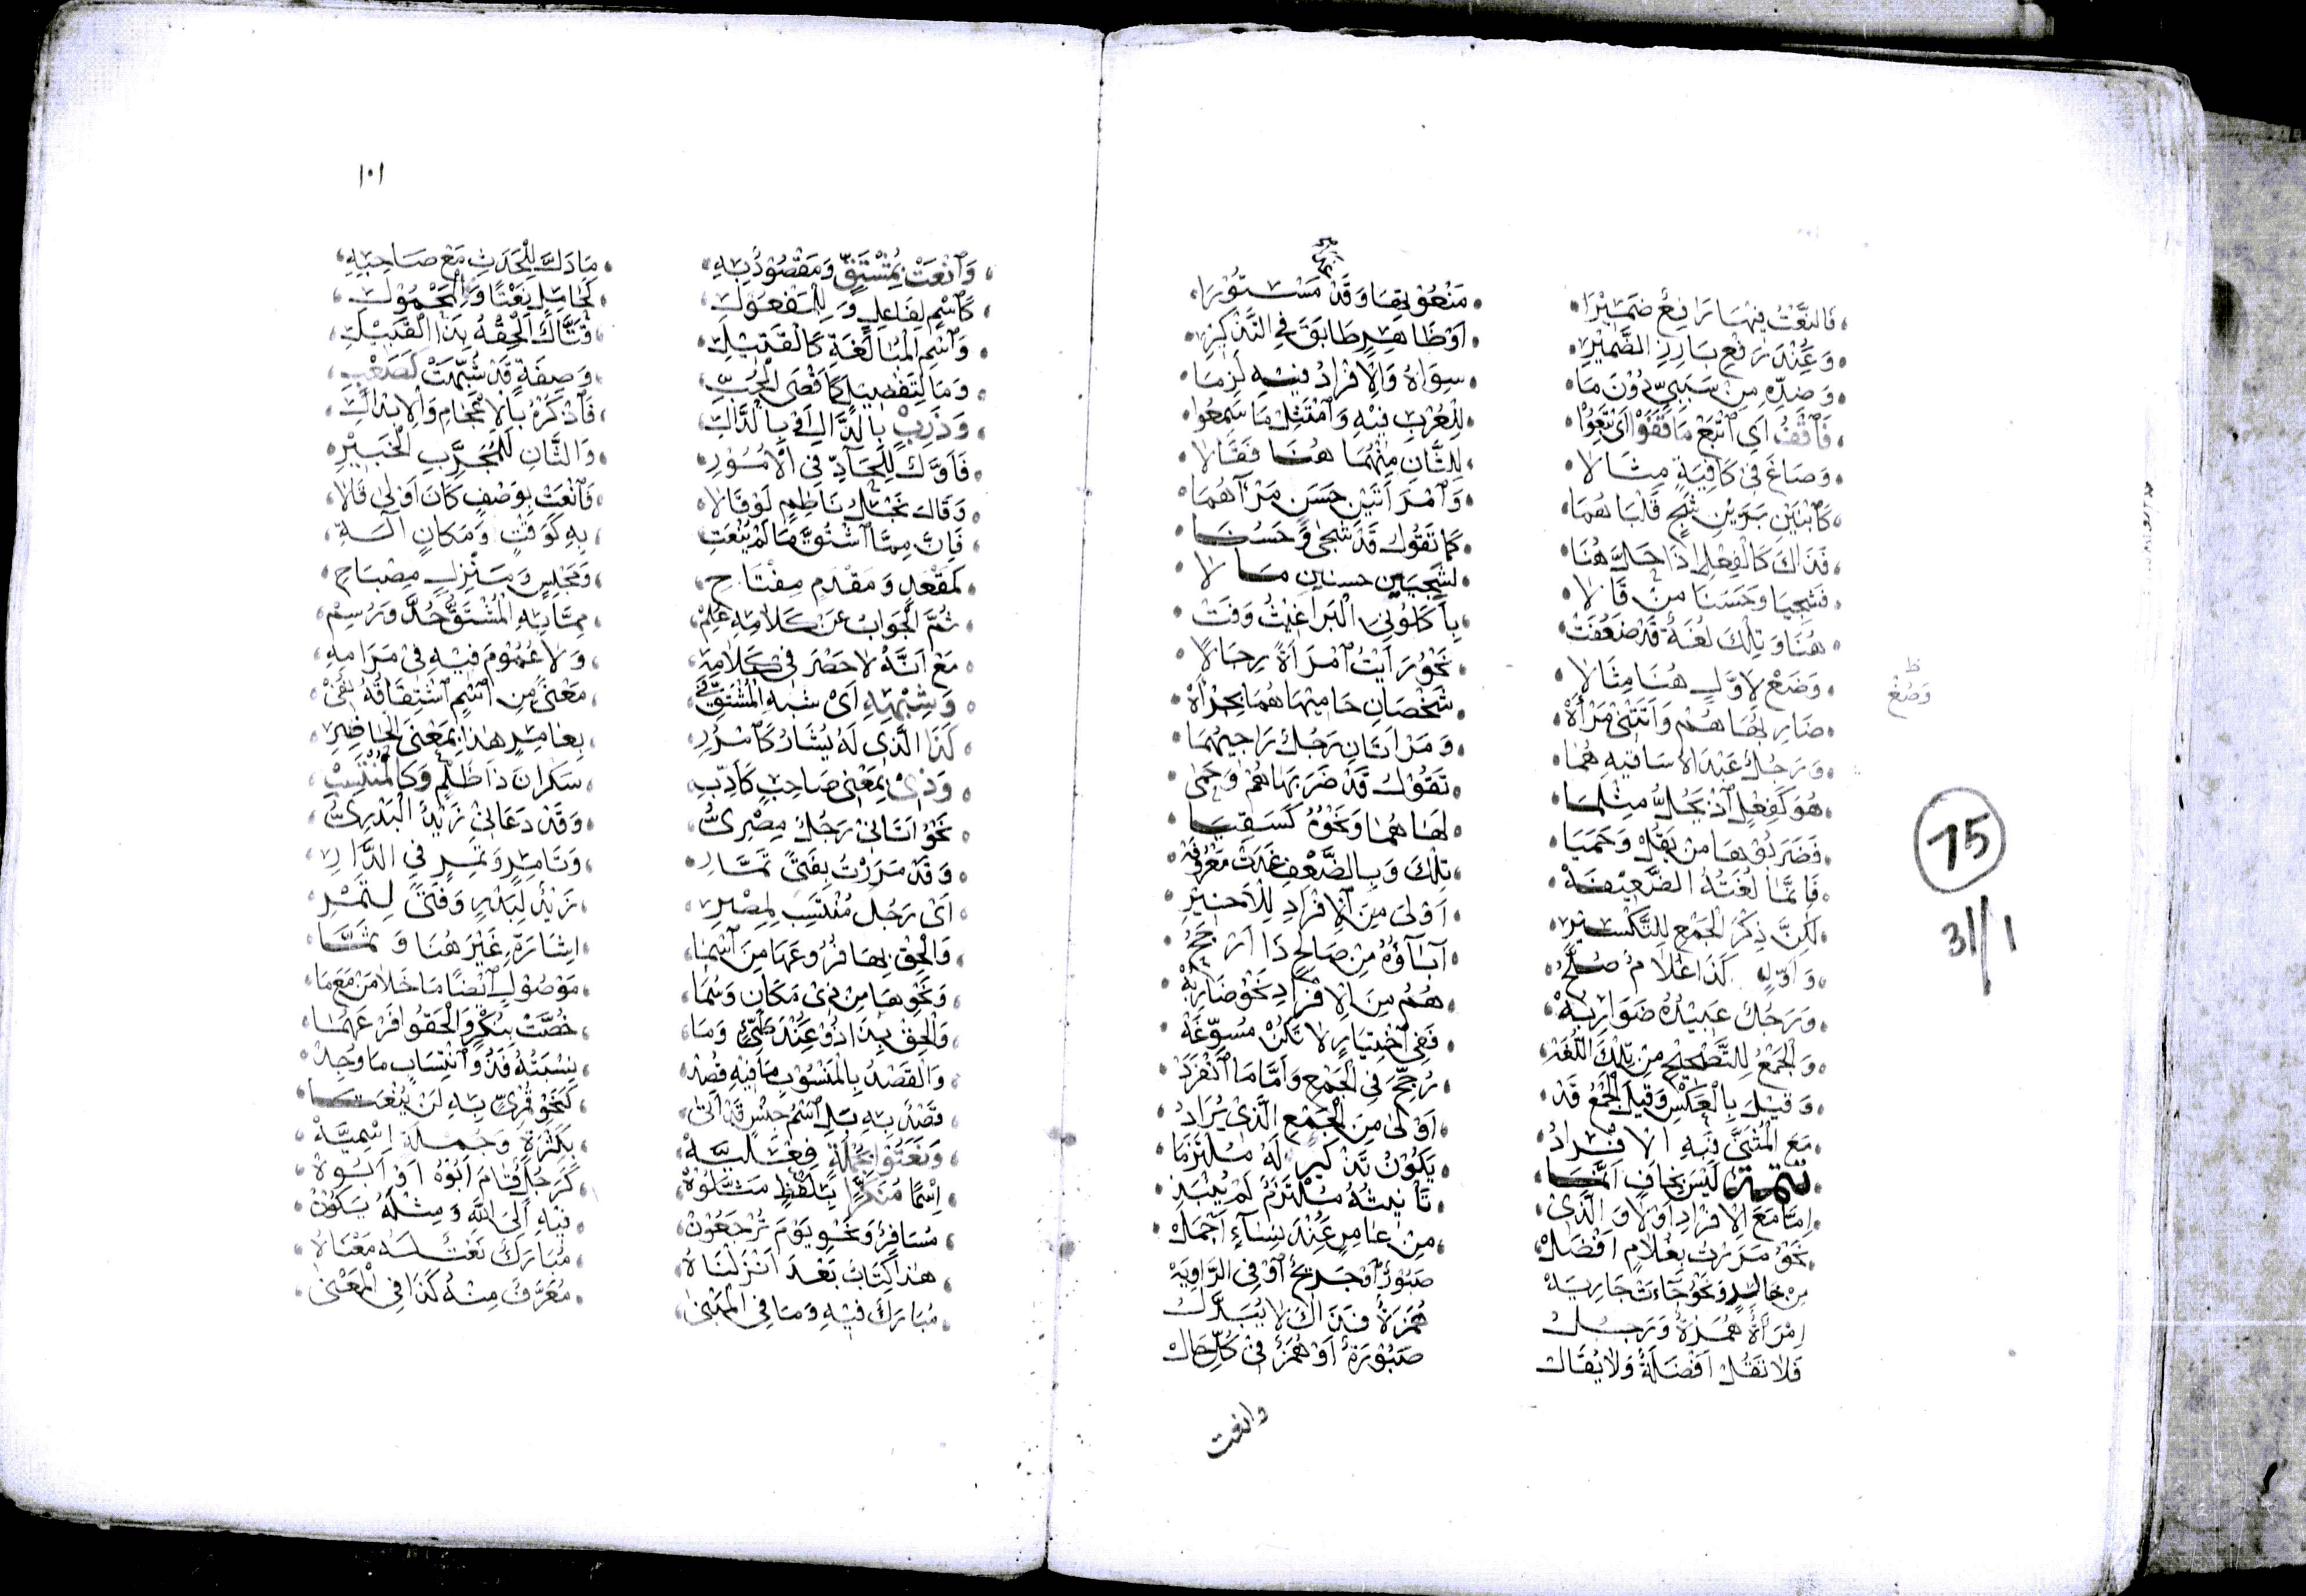 فَالنَّعْتُ فِيهَا رَافِعٌ ضَمِيْرَا مَنْعُوْتِهَا وَقَدْ مَسْتُوْرَا
وَعِنْدَ رَفْعِ بَارِزِ الضَّمِيْرِ اَوْ ظَاهِرٍ طَابَقَ فِي التَّذْكِيْرِ
وَضِدِّهِ مِنْ سَبَبِيٍّ دُوْنَ مَا سِوَاهُ وَالْاِفْرَادُ فِيْهِ لَزِمَا
فَاَقْفُ اَيِ اتْبَعْ مَا قَفَوْا اَيْ تَبِعُوْا لِلْعُرْبِ فِيْهِ وَامْتَثِلْ مَا سَمِعُوا
وَصَاغَ فِي كَافِيَةٍ مِثَالَا لِلثَّانِ مِنْهُمَا هُنَا فَقَالَا
كَابْنَيْنِ بَرَّيْنِ شَجٍ قَلْبَاهُمَا وَامْرَاَتَيْنِ حَسَنٍ مَرْآهُمَا
فَذَاكَ كَالْفِعْلِ اِذَا حَلَّ هُنَا كَمَا تَقُوْلُ قَدْ شَجَى وَحَسُنَا
فَشَجِيَا وَحَسُنَا مَنْ قَالَا لِشَجِيَيْنِ حسنين مَالَا
هُنَا وَتِلْكَ لُغَةٌ قَدْ ضَعُفَتْ بِاَكَلُوْنِي الْبَرَاغِيْثُ وَفَتْ
وَضَعْ لِاَوَّلٍ هُنَا مِثَالَا نَحْوُ رَاَيْتُ امْرَاَةً رِجَالًا
ظ
وَصُغْ
ضَارِبُهَا هُمْ وَاَتَتْنِيْ مَرْاَهْ شَخْصَانِ حَامِيْهَا هُمَا بِجُرْاَهْ
وَرَجُلٌ عَبْدَاهُ سَاقِيْهِ هُمَا وَمَرْاَتَانِ رَجُلٌ رَاجِيْهُمَا
هُوَ كَفِعْلٍ اِذْ يَحُلُّ مِثْلَمَا تَقُوْلُ قَدْ ضَرَبَهَا هُمْ وَحَمَى
فَضَرَبُوْهَا مَنْ يَقُلْ وَحَمَيَا لَهَا هُمَا وَنَحْوُهُ كَسَقِيَا
فَاِنَّمَا لُغَتُهُ الضَّعِيْفَهْ تِلْكَ وَبِالضَّعْفِ غَدَتْ مَعْرُوْفَهْ
لٰكِنَّ ذِكْرَ الْجَمْعِ لِلتَّكْسِيْرِ اَوْلَى مِنَ الْاِفْرَادِ لِلْاَخِيْرِ
وَاَوَّلٍ كَذَا غُلَامٌ صُلَّحُ آبَاؤُهُ مِنْ صَالِحٍ ذَا اَرْجَحُ
وَرَجُلٌ عَبِيْدُهُ ضَوَارِبُهْ هُمُ مِنَ الْاِفْرَادِ نَحْوُ ضَارِبُهْ
وَالْجَمْعُ لِلتَّصْحِيْحِ مِنْ تِلْكَ اللُّغَهْ فَفِي اخْتِيَارٍ لَا تَكُنْ مُسَوِّغَهْ
وَقِيْلَ بِالْعَكْسِ وَقِيْلَ الْجَمْعُ قَدْ رُجِّحَ فِي الْجَمْعِ وَاَمَّا مَا انْفَرَدْ
مَعَ الْمُثَنَّى فَبِهِ الْاِفْرَادُ اَوْلَى مِنَ الْجَمْعِ الَّذِيْ يُرَادُ
تتمة لَيْسَ بِخَافٍ اَنَّمَا يَكُوْنُ تَذْكِيْرٌ لَهُ مُلْتَزَمَا
اِمَّا مَعَ الْاِفْرَادِ اَوْ لَا وَالَّذِيْ تَاْنِيْثُهُ مُلْتَزَمٌ لَمْ يُنْبَذِ
نَحْوُ مَرَرْتُ بِغُلَامٍ اَفْضَلْ مِنْ عَامِرٍ عِنْدَ نِسَاءٍ اَجْمَلْ
مِنْ خَالِدٍ وَنَحْوُ جَاءَتْ جَارِيَهْ صَبُوْرٌ اَوْ جَرِيْحٌ اَوْ فِي الرَّاوِيَهْ
اِمْرَاَةٌ هُمَزَةٌ وَرَجُلُ هُمَزَةٌ فَذَاكَ لَا يُبَدَّلُ
فَلَا تَقُلْ اَفْضَلَةٌ وَلَا يُقَالْ صَبُوْرَةٌ اَوْ هُمَزٌ فِي كُلِّ حَالْ
وانعت
75
31//1
١٠١
وَانْعَتْ بِمُشْتَقٍّ وَمَقْصُوْدٌ بِهِ مَا دَلَّ لِلْحَدَثِ مَعْ صَاحِبِهِ
كَاسْمٍ لِفَاعِلٍ وَلِلْمَفْعُوْلِ كَحَامِلٍ نَعْتًا وَالْمَحْمُوْلِ
وَاسْمِ الْمُبَالَغَةِ كَالْقَتِيْلِ قَتَّالٌ اَلْحِقْهُ بِذَا الْقَبِيْلِ
وَمَا لِتَفْضِيْلٍ كَاَقْصَى الْحُبِّ وَصِفَةٍ قَدْ شُبِّهَتْ كَصَعْبِ
وَذَرِبٍ بِالذَّالِ اَوْ بِالدَّالِ فَاذْكُرْهُ بِالْاِعْجَامِ وَالْاِبْدَالِ
فَاَوَّلٌ لِلْحَادِّ فِي الْاُمُوْرِ وَالثَّانِ لِلْمُجَرَّبِ الْخَبِيْرِ
وَقَالَ نَجْلُ نَاظِمٍ لَوْ قَالَا فَانْعَتْ بِوَصْفٍ كَانَ اَوْلَى قَالَا
فَاِنَّ مِمَّا اشْتُقَّ مَا لَمْ يُنْعَتِ بِهِ كَوَقْتٍ وَمَكَانٍ آلَةِ
كَمَقْعَدٍ وَمَقْدَمٍ مِفْتَاحِ وَمَجْلِسٍ وَمَنْزِلٍ مِصْبَاحِ
ثُمَّ الْجَوَابُ عَنْ كَلَامِهِ عُلِمْ مِمَّا بِهِ الْمُشْتَقُّ حُدَّ وَرُسِمْ
مَعْ اَنَّهُ لَا حَصْرَ فِيْ كَلَامِهِ وَلَا عُمُوْمَ فِيْهِ فِيْ مَرَامِهِ
وَشِبْهِهِ اَيْ شِبْهِ الْمُشْتَقِّ فِيْ مَعْنًى مِنِ اسْمٍ اشْتِقَاقُهُ نُفِيْ
كَذَا الَّذِيْ لَهُ يُشَارُ كَامْرُرِ بِعَامِرٍ هٰذَا بِمَعْنَى الْحَاضِرِ
وَذِيْ بِمَعْنَى صَاحِبٍ كَاَدِّبِ سَكْرَانَ ذَا ظُلْمٍ وَكَالْمُنْتَسِبِ
نَحْوُ اَتَانِيْ رَجُلٌ مِصْرِيُّ وَقَدْ دَعَانِيْ زَيْدٌ الْبَدْرِيُّ
وَقَدْ مَرَرْتُ بِفَتًى تَمَّارِ وَتَامِرٍ وَتَمِرٍ فِي الدَّارِ
اَيْ رَجُلٍ مُنْتَسِبٍ لِمِصْرِ زَيْدٌ لِبَدْرٍ وَفَتًى لِتَمْرِ
وَالْحِقْ بِهَا فُرُوْعَهَا مِنْ اَسْمَا اِشَارَةٍ غَيْرَ هُنَا وَثَمَّا
وَنَحْوِهَا مِنْ ذِيْ مَكَانٍ وَسُمَا مَوْصُوْلٍ اَيْضًا مَا خَلَا مَنْ مَعَ مَا
وَالْحِقْ بِذَا ذُوْ عِنْدَ طَيٍّ وَمَا خُصَّتْ بِنُكْرٍ وَالْحَقُوْا فَرْعَهُمَا
وَالْقَصْدُ بِالْمَنْسُوْبِ مَا فِيْهِ قُصِدْ نِسْبَتُهُ قَدُ وَانْتِسَابٍ مَا وُجِدْ
قَصْدٌ بِهِ بَلِ اسْمُ جِنْسٍ قَدْ اَتَى كَنَحْوِ قُمْرِيٍّ بِهِ لَنْ يُنْعَتَا
وَنَعَتُوْا بِجُمْلَةٍ فِعْلِيَّهْ بِكَثْرَةٍ وَجُمْلَةٍ اِسْمِيَّهْ
اِسْمًا مُنَكَّرًا بِلَفْظٍ مَثَّلُوْهُ كَرَجُلٍ قَامَ اَبُوْهُ اَوْ اَبُوْهُ
مُسَافِرٌ وَنَحْوِ يَوْمَ تُرْجَعُوْنْ فِيْهِ اِلَى اللّٰهِ وَمِثْلُهُ يَكُوْنْ
هٰذَا كِتَابٌ بَعْدَ اَنْزَلْنَاهُ مُبَارَكٌ نَعْتٌ لَهُ مَعْنَاهُ
مُبَارَكٌ فِيْهِ وَمَا فِي الْمَبْنَى مُعَرَّفٌ مِنْهُ كَذَا فِي الْمَعْنَى